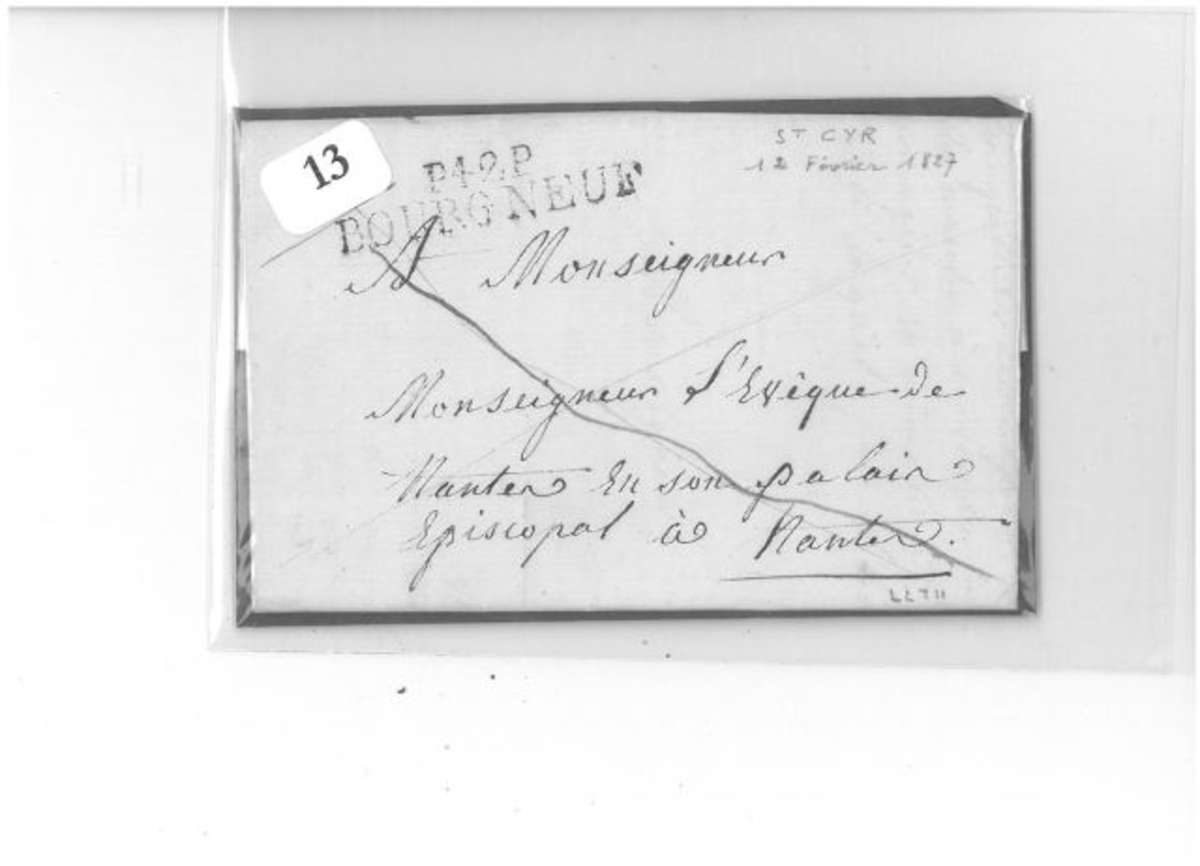 13
ST CYR
12 Février 1827
P.42.P
BOURGNEUF
A Monseigneur
Monseigneur l'Evêque de
Nantes En son palais
Episcopal à Nantes.